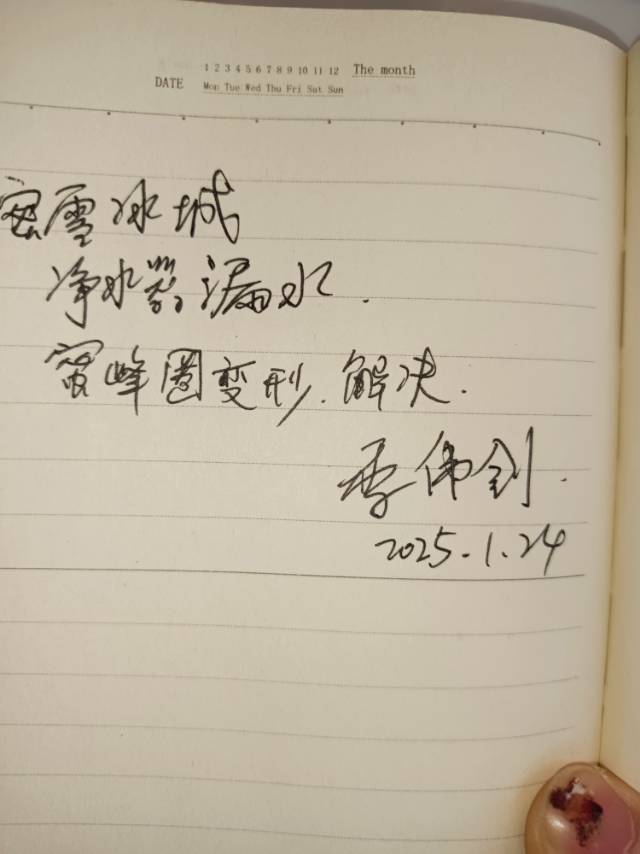 1 2 3 4 5 6 7 8 9 10 11 12 The month
DATE Mon Tue Wed Thu Fri Sat Sun
蜜雪冰城
净水器漏水.
蜜峰圈变形.解决.
李伟剑.
2025.1.24